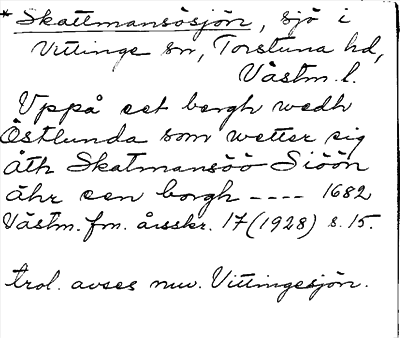 * Skattmansösjön, sjö i
Vittinge sn, Torstuna hd,
Västm. l.
Uppå eet bergh wedh
Östlunda som wetter sig
åth Skatmansöö Siöön
ähr een borgh ---- 1682
Västm. fm. årsskr. 17 (1928) s. 15.
trol. avses nuv. Vittingesjön.